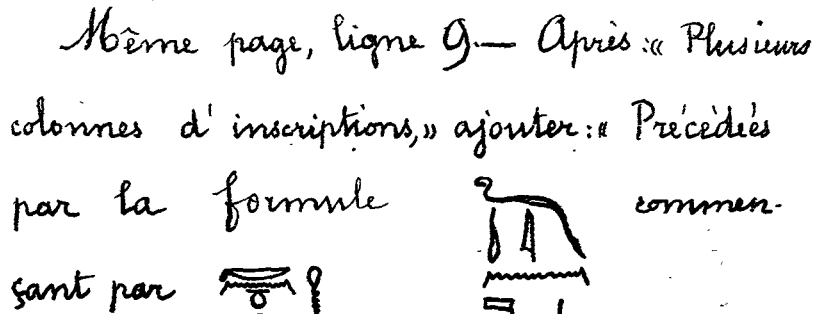 Même page, ligne 9.— Après :« Plusieurs
colonnes d' inscriptions,» ajouter :« Précédées
par la formule commen-
çant par